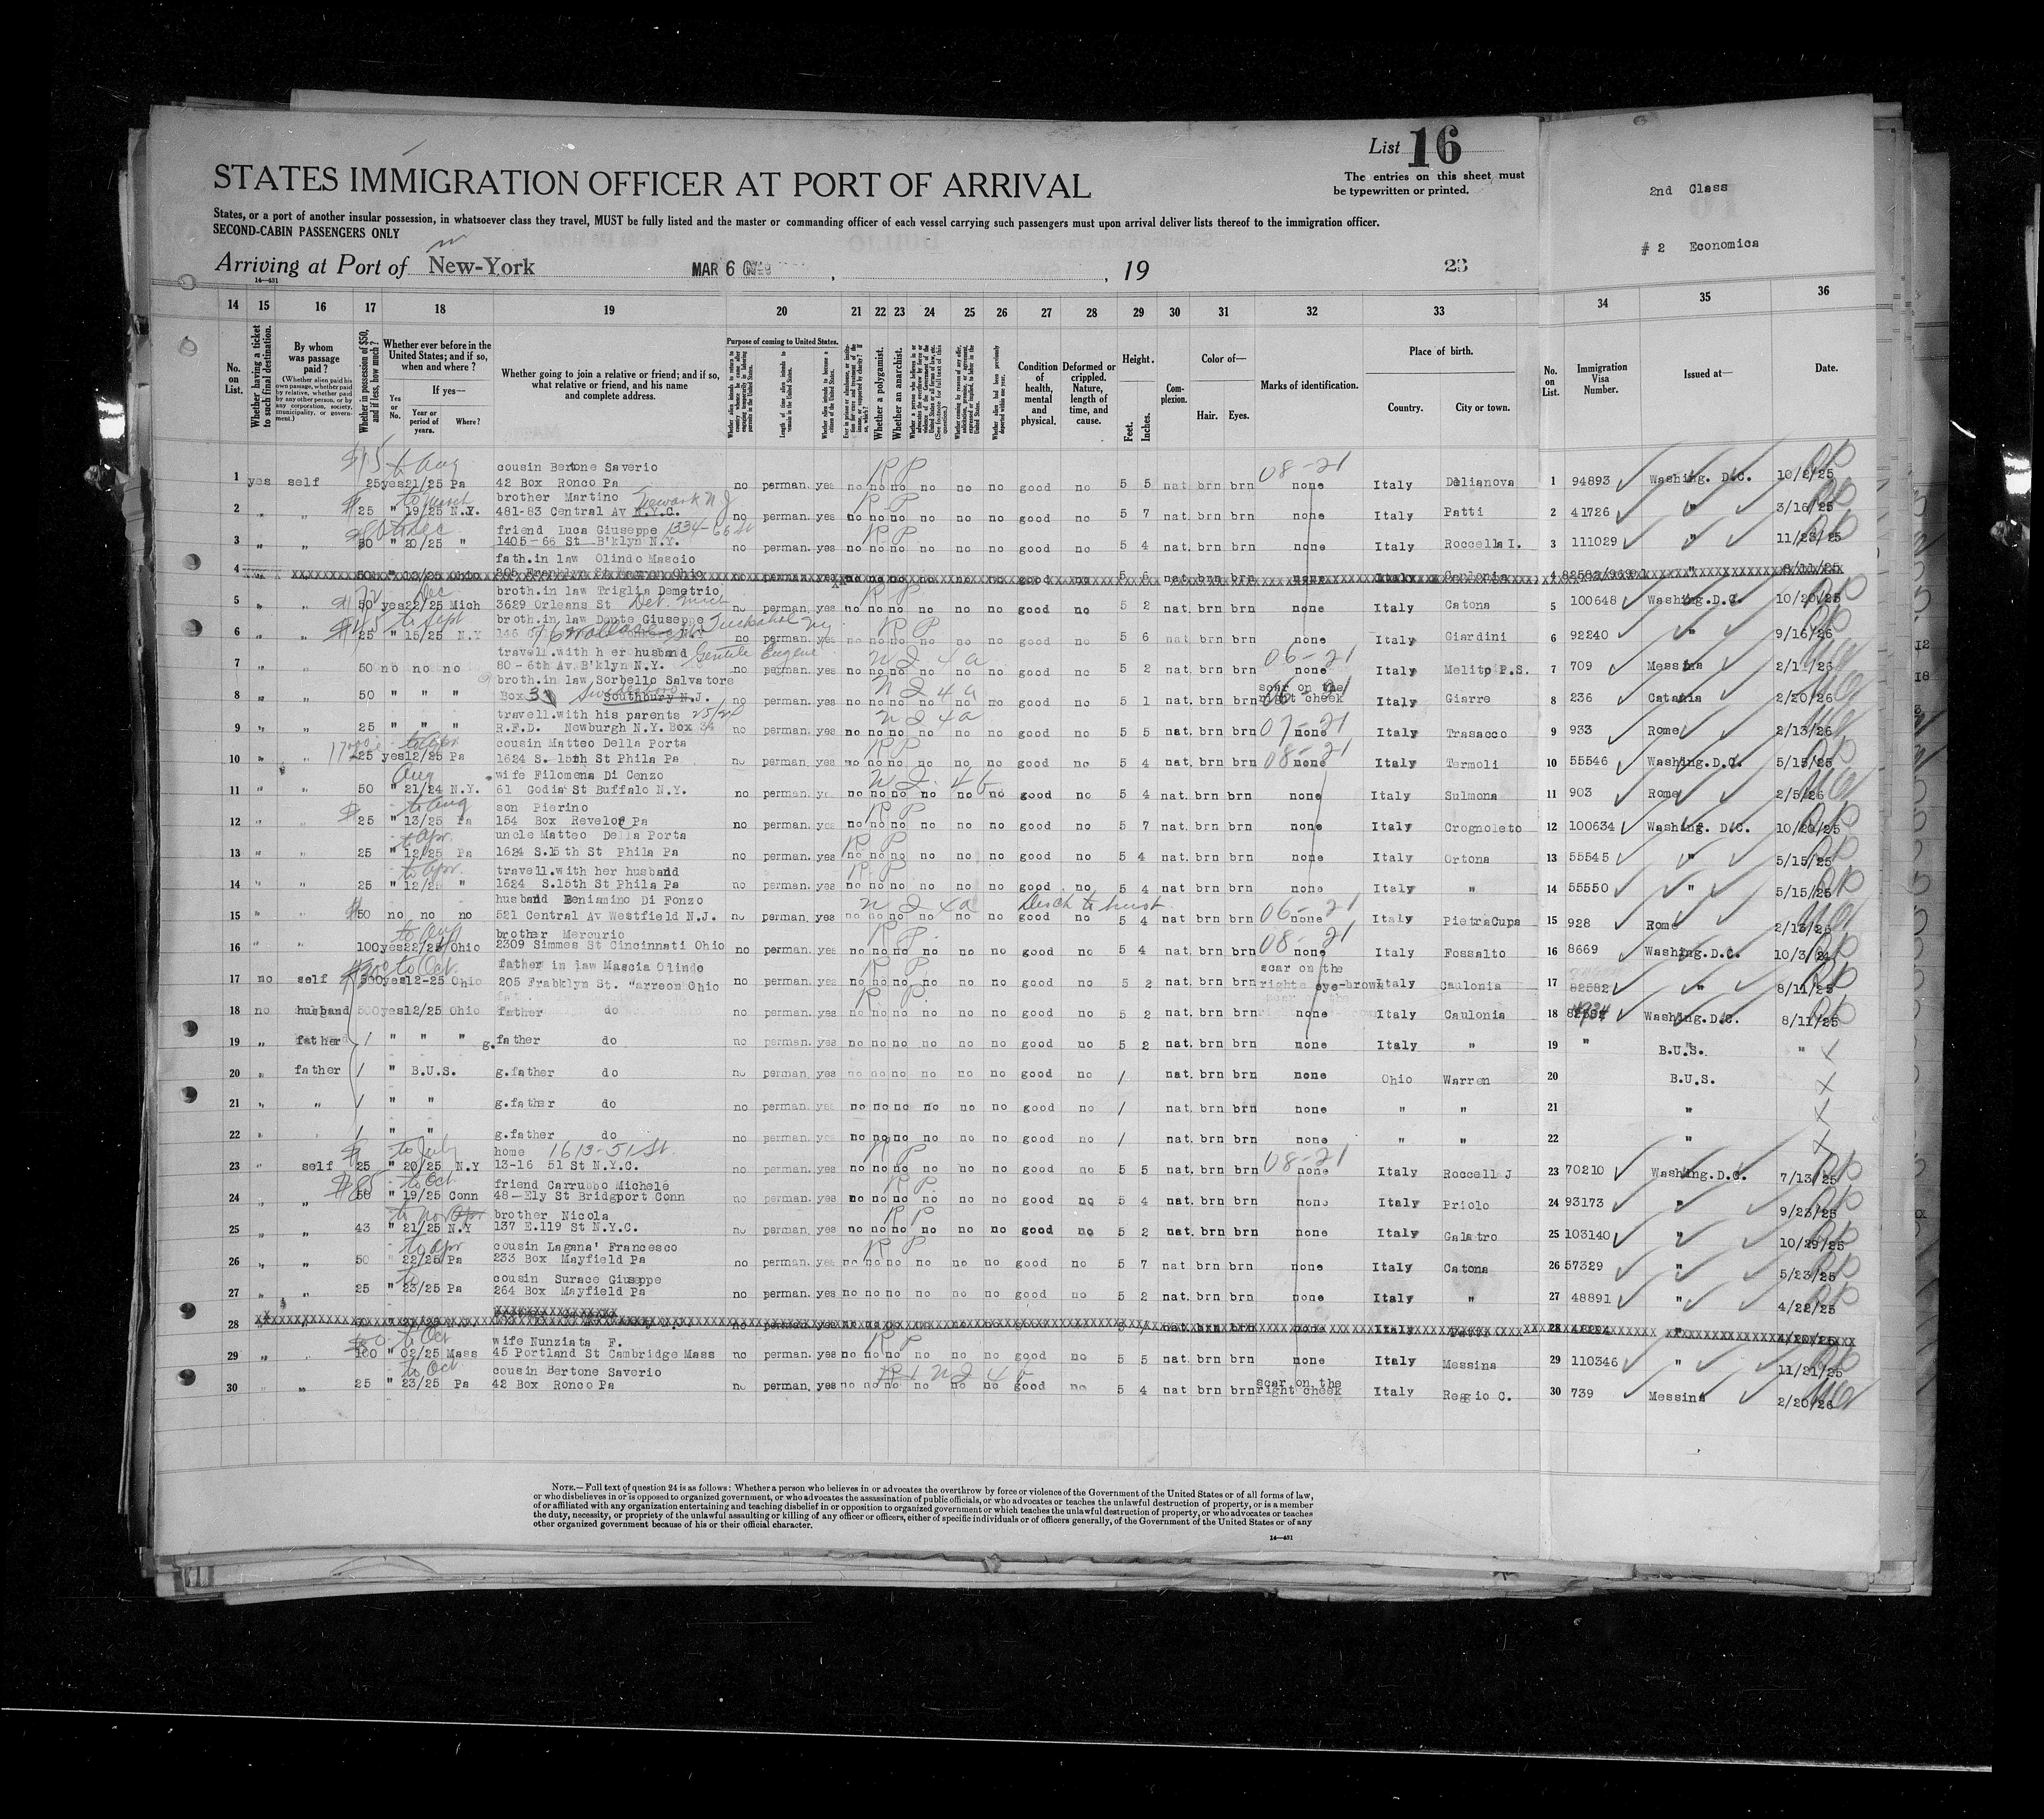 List 16
STATES IMMIGRATION OFFICER AT PORT OF ARRIVAL
The entries on this sheet must
be typewritten or printed.
2nd Class
States, or a port of another insular possession, in whatsoever class they travel, MUST be fully listed and the master or commanding officer of each vessel carrying such passengers must upon arrival deliver lists thereof to the immigration officer.
SECOND-CABIN PASSENGERS ONLY
# 2 Economics
Arriving at Port of New-York MAR 6 , , 19 23
14—431
14 15 16 17 18 19 20 21 22 23 24 25 26 27 28 29 30 31 32 33 34 35 36
No. on List.
Whether having a ticket to such final destination.
By whom was passage paid?
(Whether alien paid his own passage, whether paid by relative, whether paid by any other person, or by any corporation, society, municipality, or government.)
Whether in possession of $50, and if less, how much?
Whether ever before in the United States; and if so, when and where?
Yes or No.
If yes—
Year or period of years.
Where?
Whether going to join a relative or friend; and if so, what relative or friend, and his name and complete address.
Purpose of coming to United States.
Whether alien intends to return to country whence he came after engaging temporarily in laboring pursuits in the United States.
Length of time alien intends to remain in the United States.
Whether alien intends to become a citizen of the United States.
Whether a polygamist.
Whether an anarchist.
Condition of health, mental and physical.
Deformed or crippled. Nature, length of time, and cause.
Height.
Feet. Inches.
Complexion.
Color of—
Hair. Eyes.
Marks of identification.
Place of birth.
Country. City or town.
No. on List.
Immigration Visa Number.
Issued at—
Date.
$15 to Aug cousin Bertone Saverio R P 08-21
1 yes self 25 yes 21/25 Pa 42 Box Ronco Pa no perman. yes no no no no no no good no 5 5 nat brn brn none Italy Delianova 1 94893 Washing. D.C. 10/2/25
$ to March brother Martino Newark N J R P
2 " " 25 " 19/25 N.Y. 481-83 Central Av N.Y.C. no perman. yes no no no no no no good no 5 7 nat. brn brn none Italy Patti 2 41726 " 3/16/25
to Dec friend Luca Giuseppe 1334-66 St R P
3 " " 50 " 20/25 " 1405-66 St B'klyn N.Y. no perman. yes no no no no no no good no 5 4 nat. brn brn none Italy Roccella I. 3 111029 " 11/23/25
fath.in law Olindo Mascio
4 " 50 " 12/25 Ohio 205 Franklyn St Warren Ohio no perman yes no no no no no no good no 5 6 nat. brn brn none Italy Caulonia 4 " 8/11/25
Dec broth.in law Triglia Demetrio R P
5 " " 50 yes 22/25 Mich 3629 Orleans St Det. Mich no perman. yes no no no no no no good no 5 2 nat. brn brn none Italy Catona 5 100648 Washing.D.C. 10/20/25
$45 to Sept broth.in law Dante Giuseppe Tuckahoe NY R P
6 " " 25 " 15/25 N.Y 146 no perman. yes no no no no no no good no 5 6 nat brn brn none Italy Giardini 6 92240 " 9/16/26
travell.with her husband Gentile Eugene N I 4 a 06-21
7 " " 50 no no no 80-6th Av.B'klyn N.Y. no perman. yes no no no no no no good no 5 2 nat. brn brn none Italy Melito P.S. 7 709 Messina 2/1 /26
broth.in law Sorbello Salvatore N I 4 a scar on the
8 " " 50 " " " Box Southbury N.J. no perman. yes no no no no no no good no 5 1 nat. brn brn right cheek Italy Giarre 8 236 Catania 2/20/26
travell.with his parents N I 4a 07-21
9 " " 25 " " " R.F.D. Newburgh N.Y. Box 34 no perman. yes no no no no no no good no 5 5 nat. brn brn none Italy Trasacco 9 933 Rome 2/13/26
to Apr cousin Matteo Della Porta R P 08-21
10 " " 25 yes 12/25 Pa 1624 S. 15th St Phila Pa no perman. yes no no no no no no good no 5 4 nat. brn brn none Italy Termoli 10 55546 Washing.D.C. 5/15/25
Aug wife Filomena Di Cenzo N I 4 b
11 50 " 21/24 N.Y. 61 Codia St Buffalo N.Y. no perman. yes no no no no no no good no 5 4 nat. brn brn none Italy Sulmona 11 903 Rome 2/5/26
$ to Aug son Pierino R P
12 " " 25 " 13/25 Pa 154 Box Reveloc Pa no perman. yes no no no no no no good no 5 7 nat. brn brn none Italy Crognoleto 12 100634 Washing. D.C. 10/20/25
to Apr. uncle Matteo Della Porta R P
13 " " 25 " 12/25 Pa 1624 S.15 th St Phila Pa no perman. yes no no no no no no good no 5 4 nat. brn brn none Italy Ortona 13 55545 " 5/15/25
to Apr. travell.with her husband R P
14 " " 25 " 12/25 " 1624 S.15th St Phila Pa no perman. yes no no no no no no good no 5 4 nat brn brn none Italy " 14 55550 " 5/15/25
husband Beniamino Di Fonzo N I 4a Disch to husb. 06-21
15 " " $50 no no no 521 Central Av Westfield N.J. no perman. yes no no no no no no good no 5 4 nat brn brn none Italy PietraCupa 15 928 Rome 2/15/26
to Aug brother Mercurio R P 08-21
16 " " 100 yes 22/25 Ohio 2309 Simmes St Cincinnati Ohio no perman. yes no no no no no no good no 5 4 nat. brn brn none Italy Fossalto 16 8669 Washing.D.C. 10/3/24
$300 to Oct. father in law Mascia Olindo R P scar on the
17 no self 300 yes 12-25 Ohio 205 Frabklyn St. "arreon Ohio no perman. yes no no no no no no good no 5 2 nat. brn brn righte eye-brown Italy Caulonia 17 82582 " 8/11/25
R P
18 no husband 500 yes 12/25 Ohio father do no perman. yes no no no no no no good no 5 2 nat. brn brn none Italy Caulonia 18 Washing.D.C. 8/11/25
19 " father / " " " g.father do no perman. yes no no no no no no good no 5 2 nat. brn brn none Italy " 19 " B.U.S. " X
20 " father / " B.U.S. g.father do no perman. yes no no no no no no good no / nat. brn brn none Ohio Warren 20 B.U.S. X
21 " " / " " g.father do no perman. yes no no no no no no good no / nat. brn brn none " " 21 " X
22 " " / " " g.father do no perman. yes no no no no no no good no / nat. brn brn none " " 22 " X
$ to July home 1613-51 St. R P 08-21
23 " self 25 " 20/25 N.Y 13-16 51 St N.Y.C. no perman. yes no no no no no no good no 5 5 nat. brn brn none Italy Roccell J 23 70210 Washing.D.C. 7/13/25
$85 to Oct. friend Carrubbo Michele R P.
24 " " 50 " 19/25 Conn 48-Ely St Bridgport Conn no perman. yes no no no no no no good no 5 4 nat. brn brn none Italy Priolo 24 93173 " 9/23/25
to Nov Apr brother Nicola R P
25 " " 43 " 21/25 N.Y 137 E.119 St N.Y.C. no perman. yes no no no no no no good no 5 2 nat. brn brn none Italy Galatro 25 103140 " 10/29/25
to Apr cousin Lagana' Francesco R P
26 " " 50 " 22/25 Pa 233 Box Mayfield Pa no perman. yes no no no no no no good no 5 7 nat brn brn none Italy Catona 26 57329 " 5/23/25
to cousin Surace Giuseppe
27 " " 25 " 23/25 Pa 264 Box Mayfield Pa no perman. yes no no no no no no good no 5 2 nat. brn brn none Italy " 27 48891 " 4/22/25
28 no perman. yes no no no no no no good no nat. brn brn none Italy Patti 28 " 4/20/25
to Oct wife Nunziata F. R P
29 " " 100 " 02/25 Mass 45 Portland St Cambridge Mass no perman. yes no no no no no no good no 5 5 nat. brn brn none Italy Messina 29 110346 " 11/21/25
to Oct. cousin Bertone Saverio N I 4 b scar on the
30 " " 25 " 23/25 Pa 42 Box Ronco Pa no perman. yes no no no no no no good no 5 4 nat brn brn right cheek Italy Reggio C. 30 739 Messina 2/20/26
NOTE.—Full text of question 24 is as follows: Whether a person who believes in or advocates the overthrow by force or violence of the Government of the United States or of all forms of law,
or who disbelieves in or is opposed to organized government, or who advocates the assassination of public officials, or who advocates or teaches the unlawful destruction of property, or is a member
of or affiliated with any organization entertaining and teaching disbelief in or opposition to organized government or which teaches the unlawful destruction of property, or who advocates or teaches
the duty, necessity, or propriety of the unlawful assaulting or killing of any officer or officers, either of specific individuals or of officers generally, of the Government of the United States or of any
other organized government because of his or their official character.
14—431